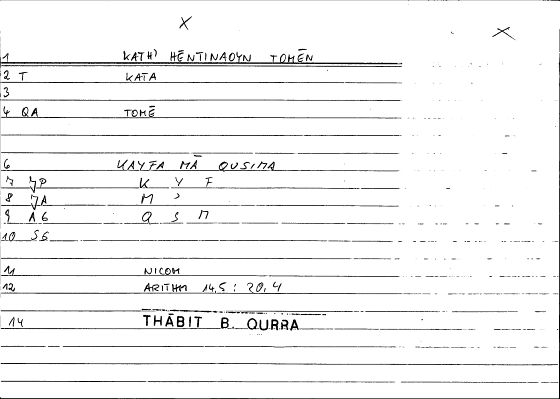 X X
1 KATH' HĒNTINAOYN TOMĒN
2 T KATA
3
4 QA TOMĒ
6 KAYFA MĀ QUSIMA
7 P K Y F
8 A M ʾ
9 A6 Q S M
10 S6
11 NICOM
12 ARITHM 14,5 : 20,4
14 THĀBIT B. QURRA